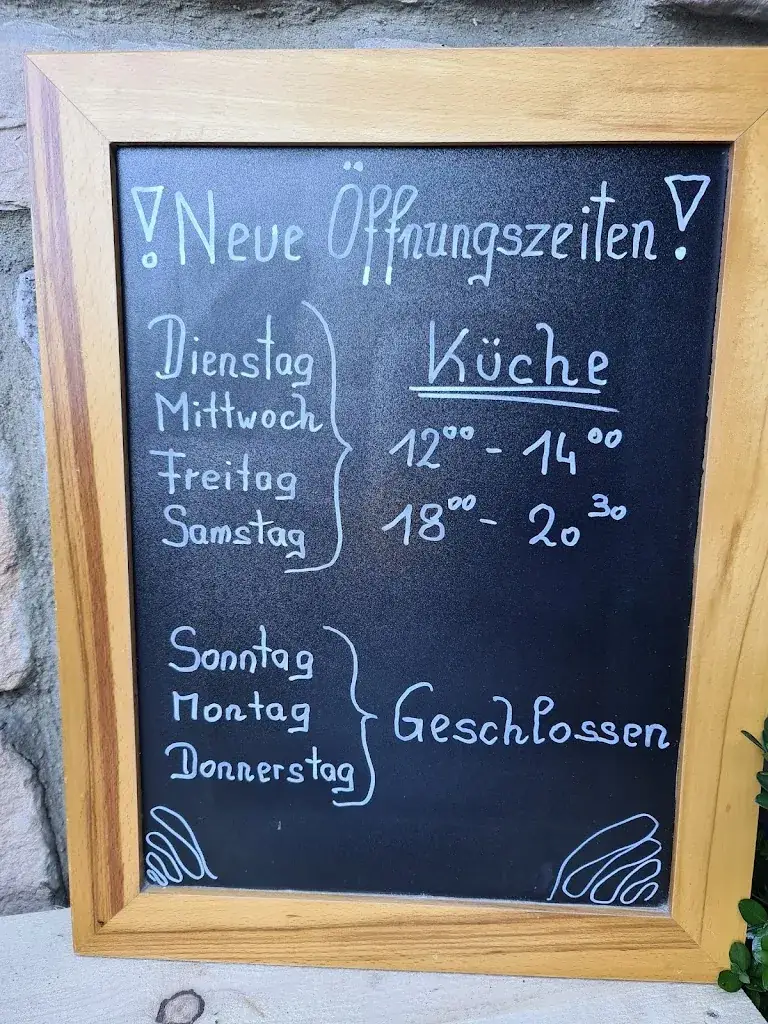 ! Neue Öffnungszeiten !
Dienstag
Mittwoch
Freitag
Samstag
Küche
12⁰⁰ - 14⁰⁰
18⁰⁰ - 20³⁰
Sonntag
Montag
Donnerstag
Geschlossen